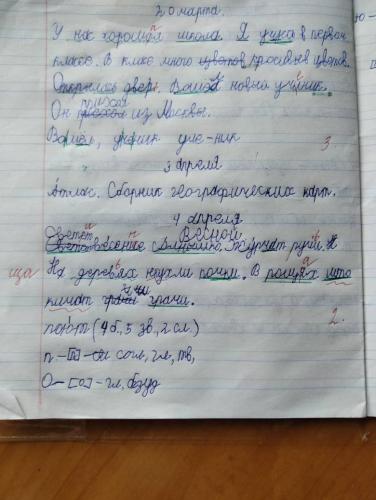 20 марта.
У нас хорошая школа. Я учусь в первом
классе. В класе много цветов красивых цветов.
Открылась дверь. Вошёл новый ученик.
Он приехал из Москвы.
Вошёл, ученик уче-ник
3
3 апреля
Атлас. Сборник географических карт.
4 апреля
Весной
Светет весенее солнышко. Журчат ручи. Н
На деревях почки. В полях
ща
кричат грачи.
2.
поют (4 б., 5 зв., 2 сл.)
п - [п] - согл., гл., тв,
О - [о] - гл, безуд